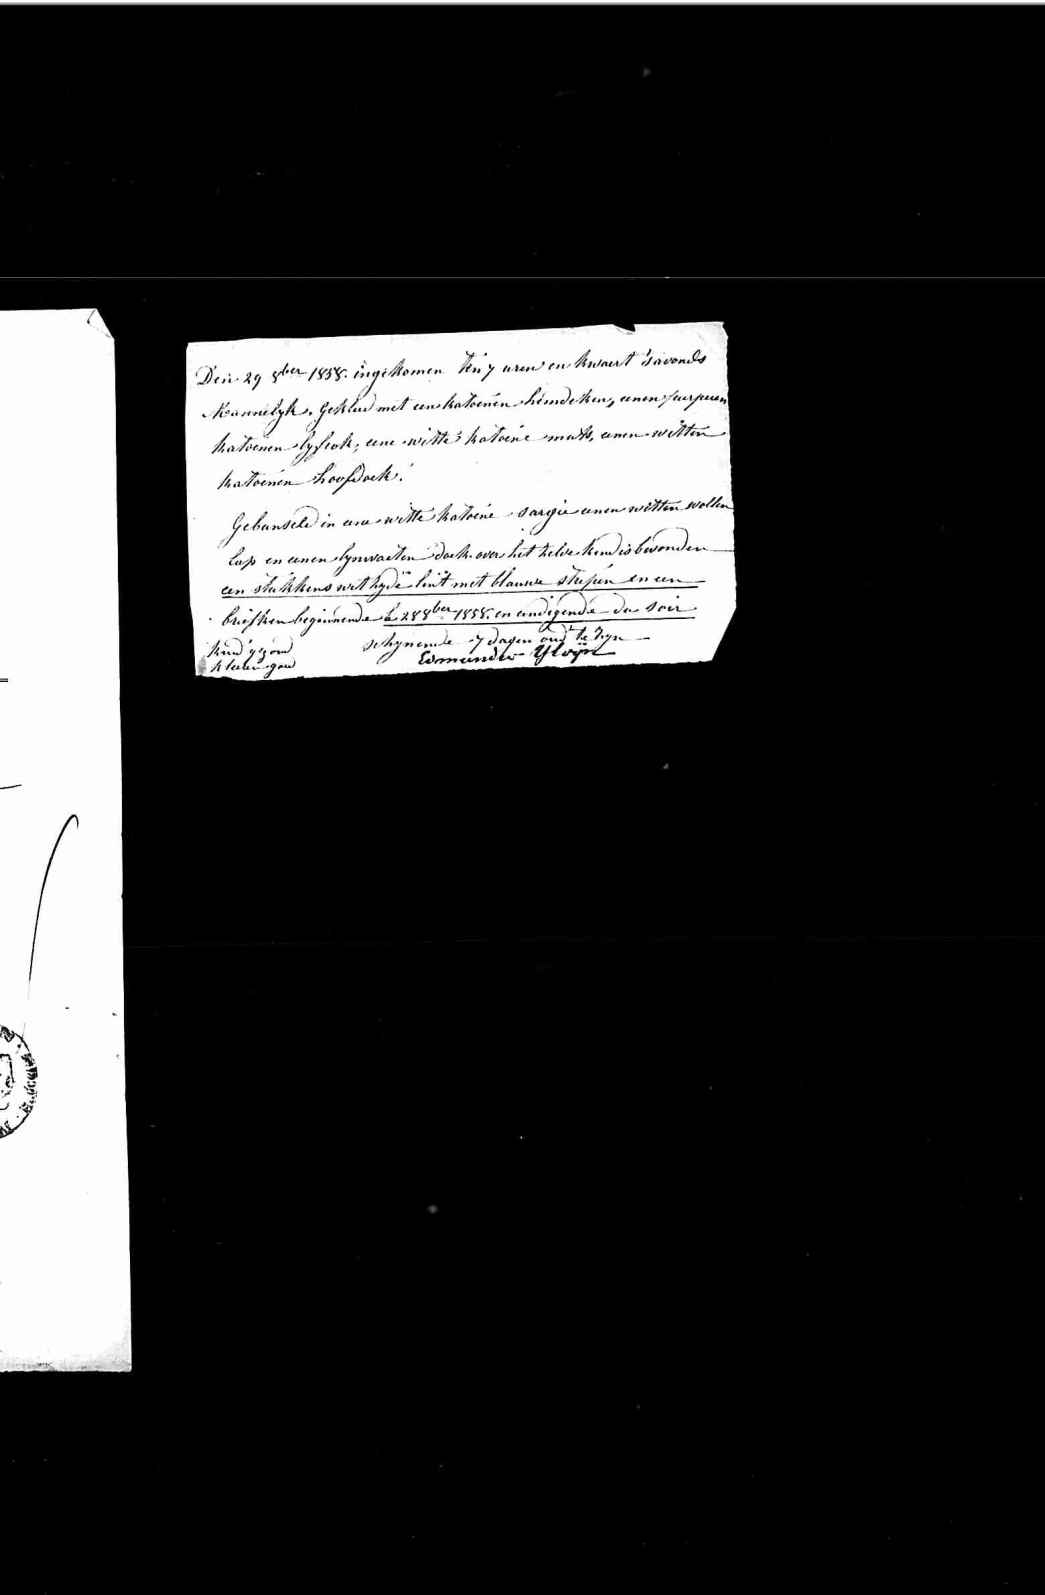 Den 29 8ber 1858. ingekomen ten 7 uren en kwaert 's avonds
Mannelyk. Gekleed met een katoenen hemdeken, eenen purperen
katoenen lyfrok, eene witte katoene muts, eenen witten
katoenen hoofdoek.
Gebunseld in eene witte katoene sargie eenen witten wollen
lap en eenen lynwaeten doek. over het zelve kind is bevonden
een stukken wit zyde lint met blauwe strepen en een
briefken beginnende Le 28 8ber 1858. en eindigende du soir
schynende 7 dagen oud te zyn
kind gezond
kleeren goed
Edmundus